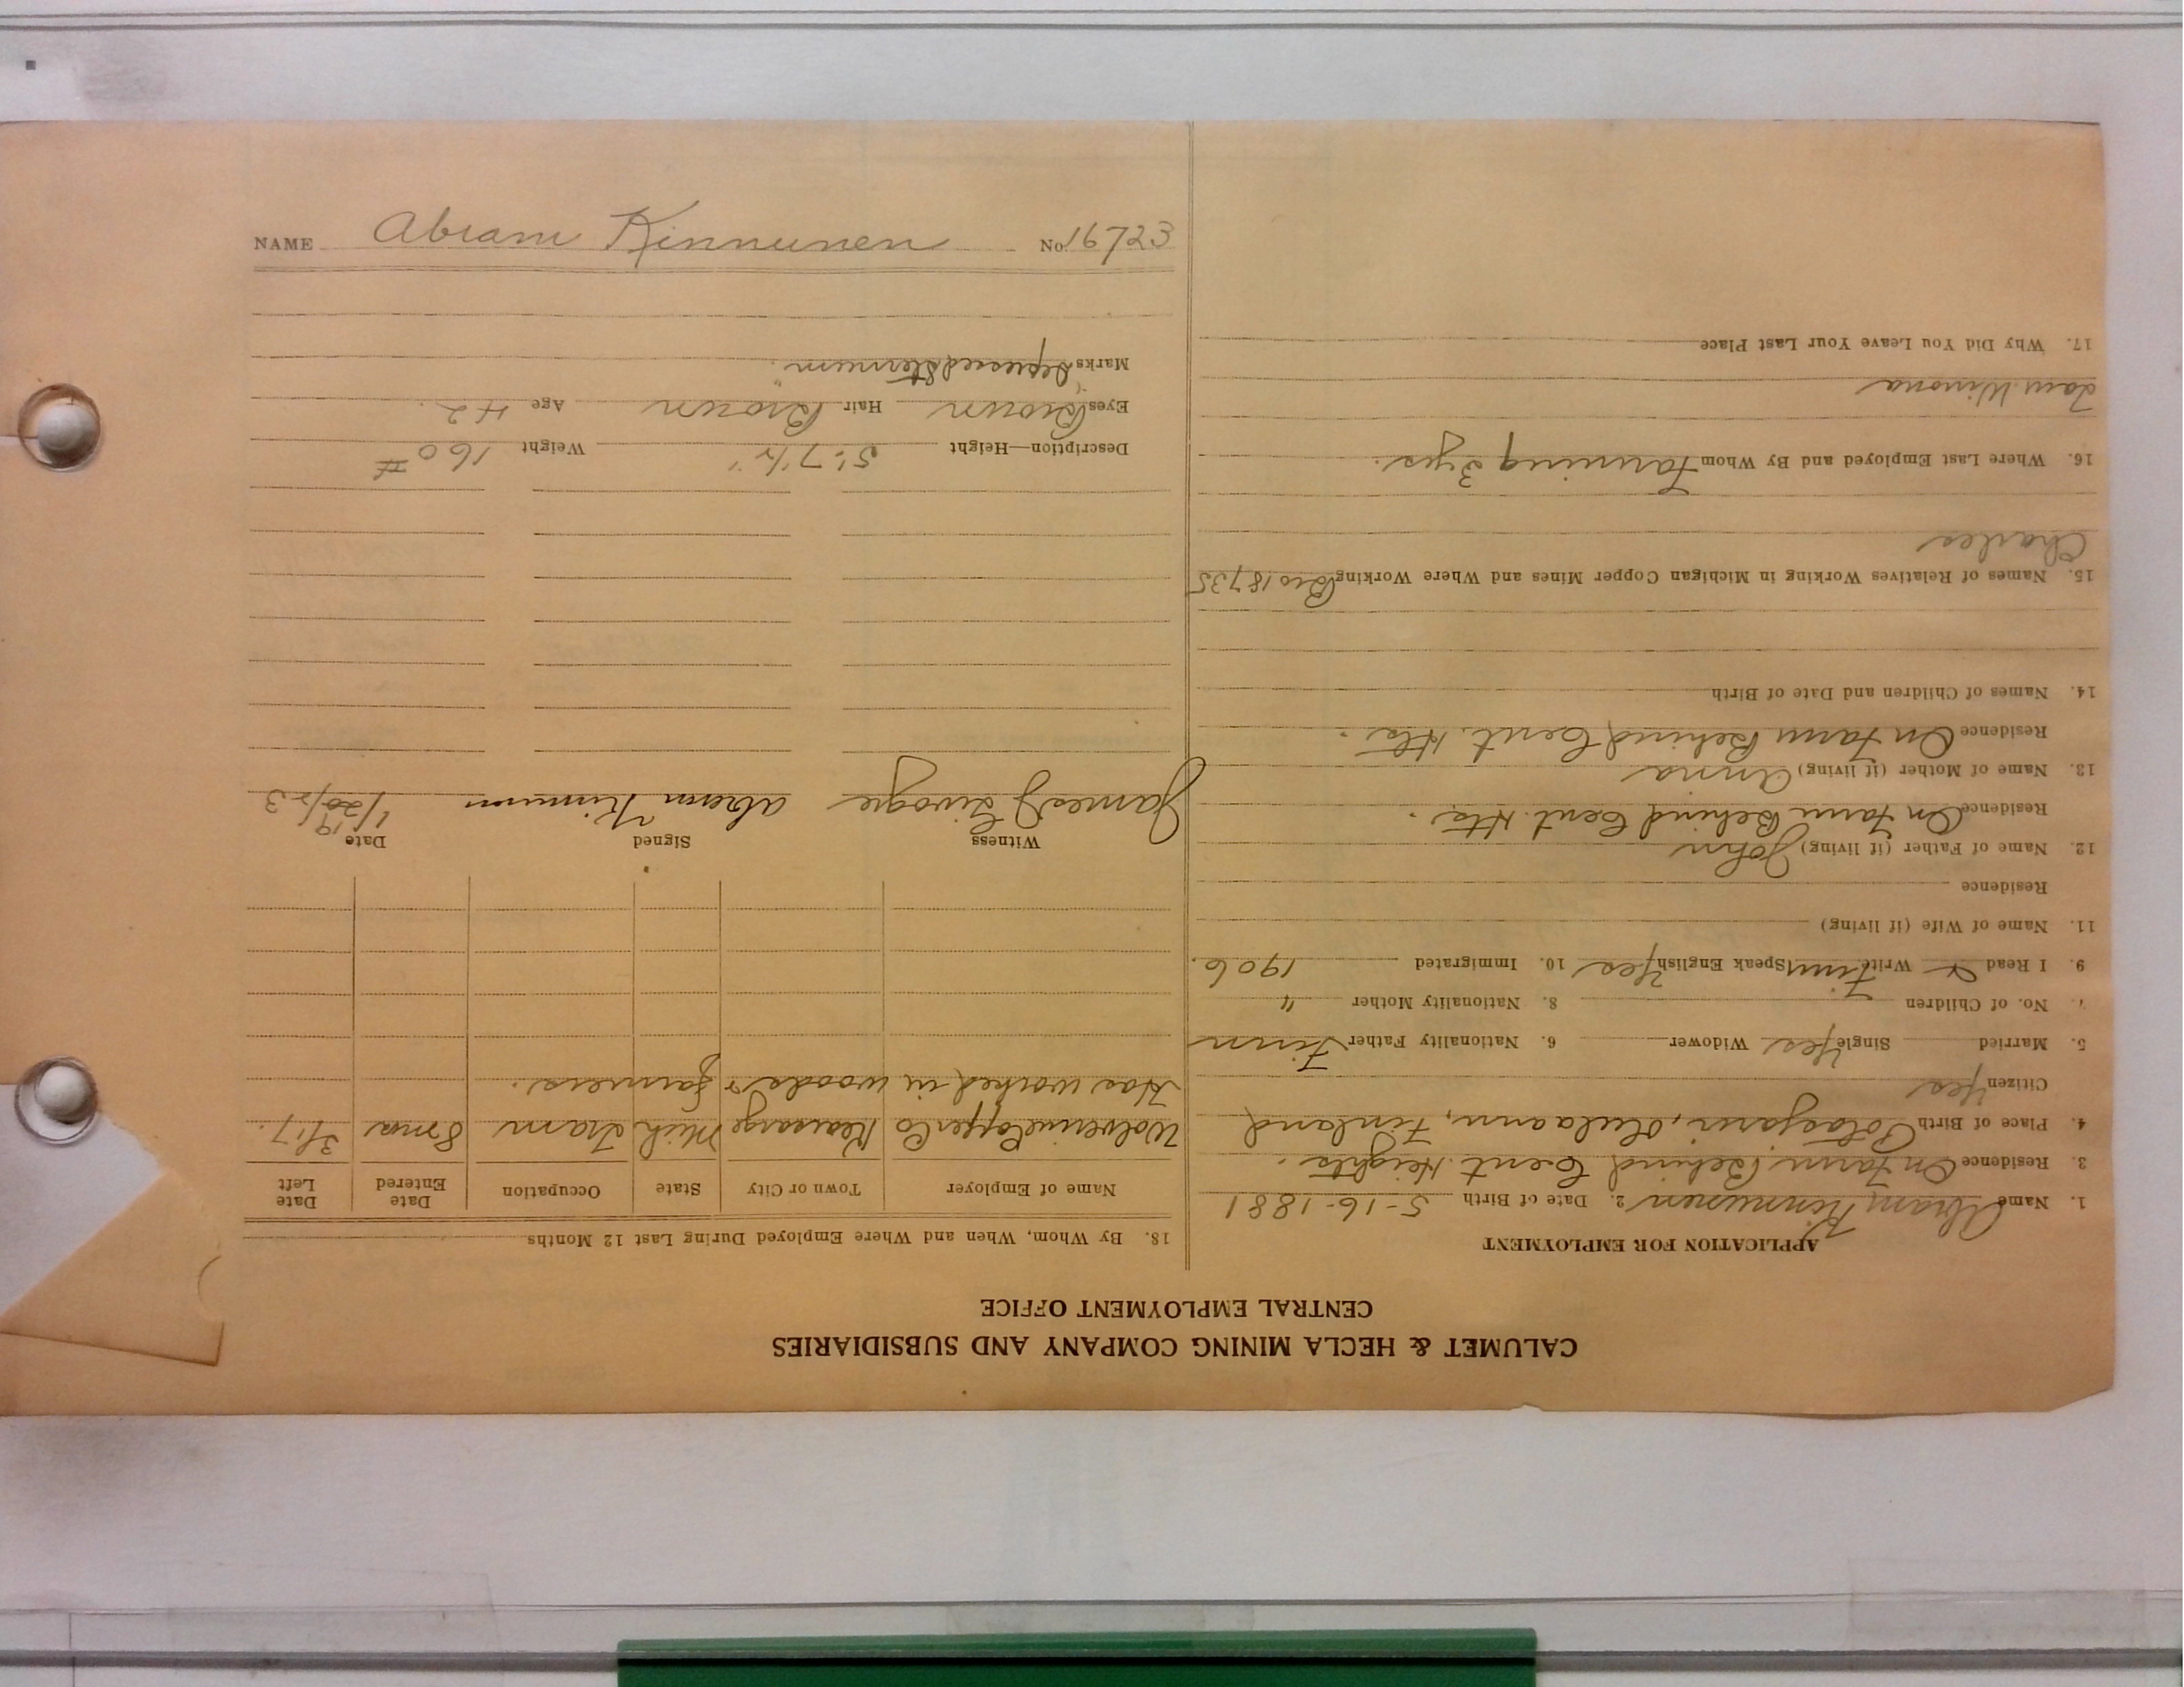 NAME Abram Kinnunen No. 16723
CALUMET & HECLA MINING COMPANY AND SUBSIDIARIES
CENTRAL EMPLOYMENT OFFICE
APPLICATION FOR EMPLOYMENT
1. Name Abram Kinnunen 2. Date of Birth 5-16-1881
3. Residence On Farm Behind Cent. Heights.
4. Place of Birth Finland
Citizen Yes
5. Married Single Yes Widower 6. Nationality Father Finn
7. No. of Children 8. Nationality Mother "
9. I Read & Write Finn Speak English Yes 10. Immigrated 1906.
11. Name of Wife (if living)
Residence
12. Name of Father (if living) John
Residence On Farm Behind Cent. Hts.
13. Name of Mother (if living) Anna
Residence On Farm Behind Cent. Hts.
14. Names of Children and Date of Birth
15. Names of Relatives Working in Michigan Copper Mines and Where Working Bro 18735
Charles
16. Where Last Employed and By Whom Farming 3 yrs.
Winona
17. Why Did You Leave Your Last Place
18. By Whom, When and Where Employed During Last 12 Months
Name of Employer Town or City State Occupation Date Entered Date Left
Wolverine Copper Co Kearsarge Mich Tram 8 mos 3/17.
Has worked in woods & farmers.
Witness Signed Date
James J Abram Kinnunen 1/20/1923
Description—Height 5'-7½" Weight 160 #
Eyes Brown Hair Brown Age 42.
Marks Depressed Sternum.